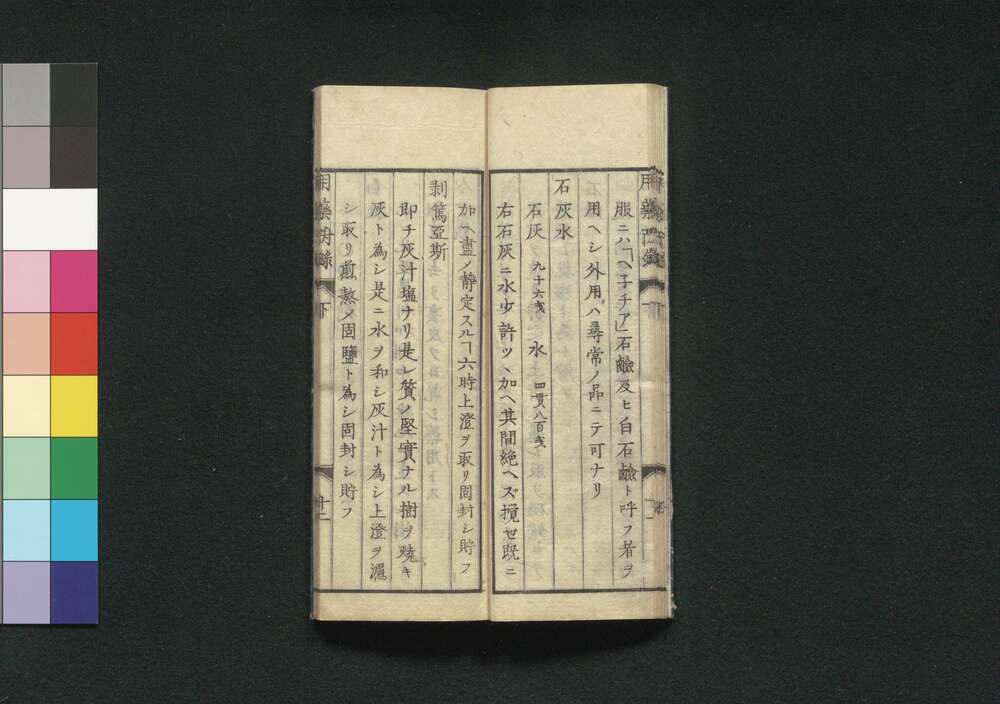 服ニハ「ヘ子チア」石鹼及ヒ白石鹼ト呼フ者ヲ
用ヘシ外用ハ尋常ノ品ニテ可ナリ
石灰水
石灰 九十六戔 水 四貫八百戔
右石灰ニ水少許ツヽ加ヘ其間絶ヘズ攪セ既ニ
加ヘ盡ノ靜定スルヿ六時上澄ヲ取リ固封シ貯フ
剥篤亞斯
即チ灰汁塩ナリ是レ質ノ堅實ナル樹ヲ燒キ
灰ト為シ是ニ水ヲ和シ灰汁ト為シ上澄ヲ濾
シ取リ煎熬ノ固鹽ト為シ固封シ貯フ
下
十二